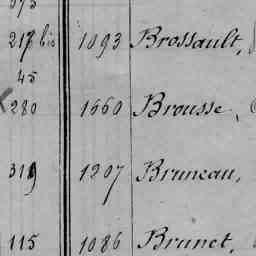 373
217 bis 1093 Brossault,
45
280 1660 Brousse,
319 1207 Bruneau,
115 1086 Brunet,